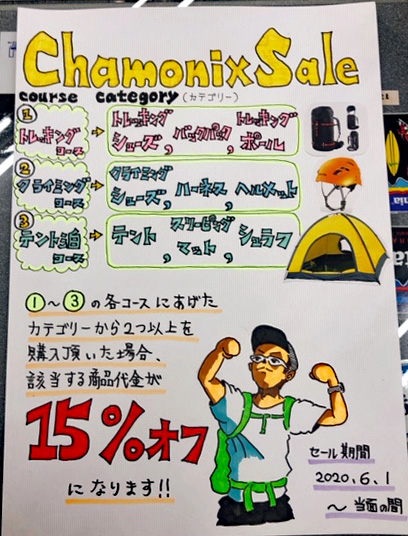 Chamonix Sale
course category (カテゴリー)
① トレッキングコース → トレッキングシューズ, バックパック, トレッキングポール
② クライミングコース → クライミングシューズ, ハーネス, ヘルメット
③ テント泊コース → テント, スリーピングマット, シュラフ
①～③の各コースにあげた
カテゴリーから2つ以上を
購入頂いた場合、
該当する商品代金が
15%オフ
になります!!
セール期間
2020.6.1
～当面の間